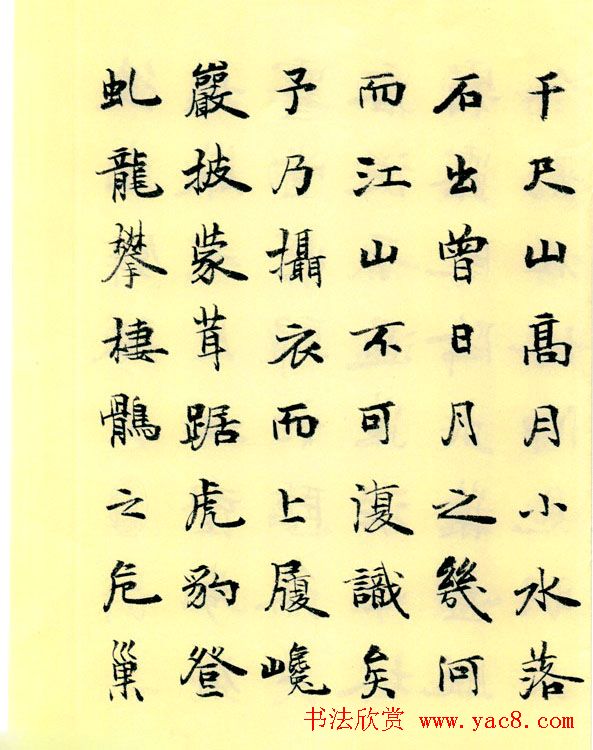 千尺山高月小水落
石出曾日月之幾何
而江山不可復識矣
予乃攝衣而上履巉
巖披蒙茸踞虎豹登
虬龍攀棲鶻之危巢
书法欣赏 www.yac8.com